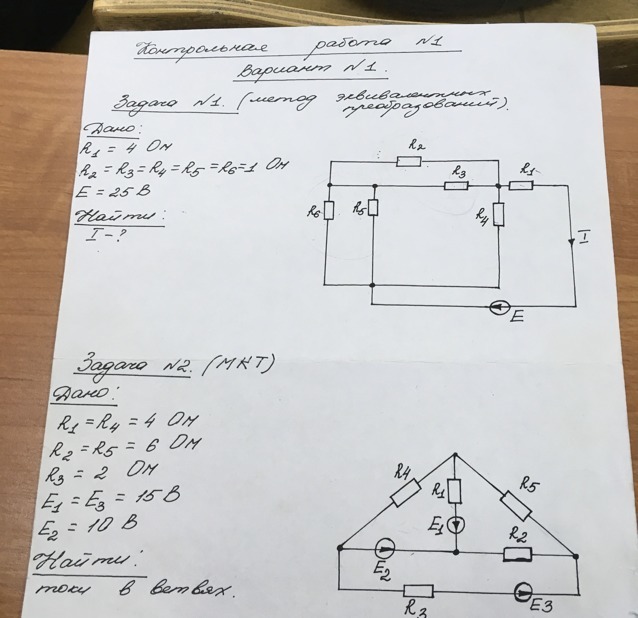 Контрольная работа N1
Вариант N1.
Задача N1. (метод эквивалентных
преобразований).
Дано:
R1 = 4 Ом
R2 = R3 = R4 = R5 = R6 = 1 Ом
E = 25 В
Найти:
I - ?
R2
R3
R1
R6
R5
R4
I
E
Задача N2. (МКТ)
Дано:
R1 = R4 = 4 Ом
R2 = R5 = 6 Ом
R3 = 2 Ом
E1 = E3 = 15 В
E2 = 10 В
Найти:
токи в ветвях.
R4
R1
R5
E1
R2
E2
R3
E3